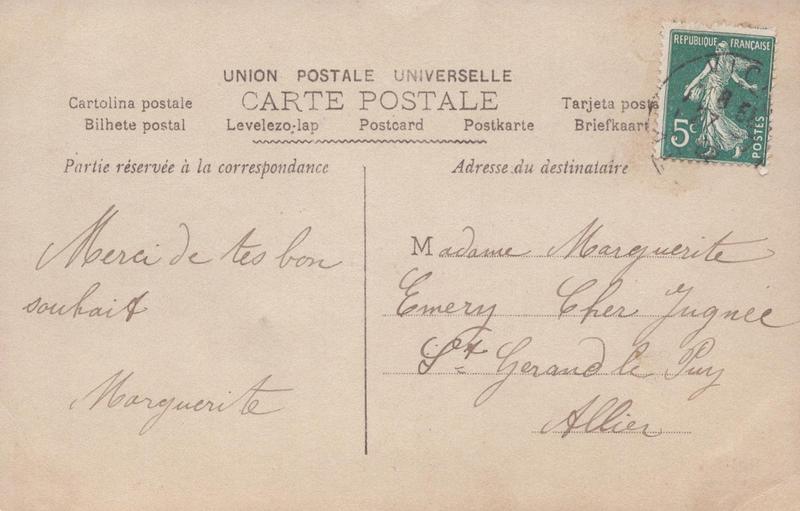 REPUBLIQUE FRANÇAISE
5c
POSTES
UNION POSTALE UNIVERSELLE
CARTE POSTALE
Cartolina postale Tarjeta posta
Bilhete postal Levelezo-lap Postcard Postkarte Briefkaart
Partie réservée à la correspondance
Adresse du destinataire
Merci de tes bon
souhait
Marguerite
Madame Marguerite
Emery Cher Jugnée
St Gerand le Puy
Allier